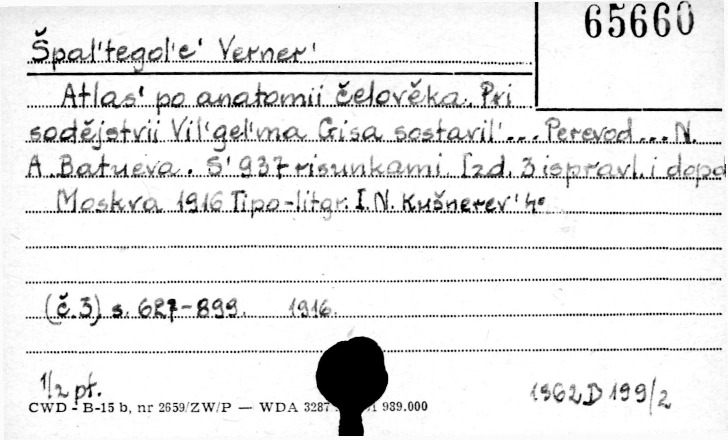 65660
Špal'tegol'c' Verner'
Atlas' po anatomii čelověka. Pri
sodějstvii Vil'gel'ma Gisa sostavil'... Perevod... N.
A. Batueva. S' 937 risunkami Izd. 3 ispravl. i dopo
Moskva 1916 Tipo-litgr. I. N. Kušnerev'
(č. 3) s. 627-899. 1916.
1/2 pt. 1962 D 199/2
CWD - B-15 b, nr 2659/ZW/P — WDA 3287 989.000